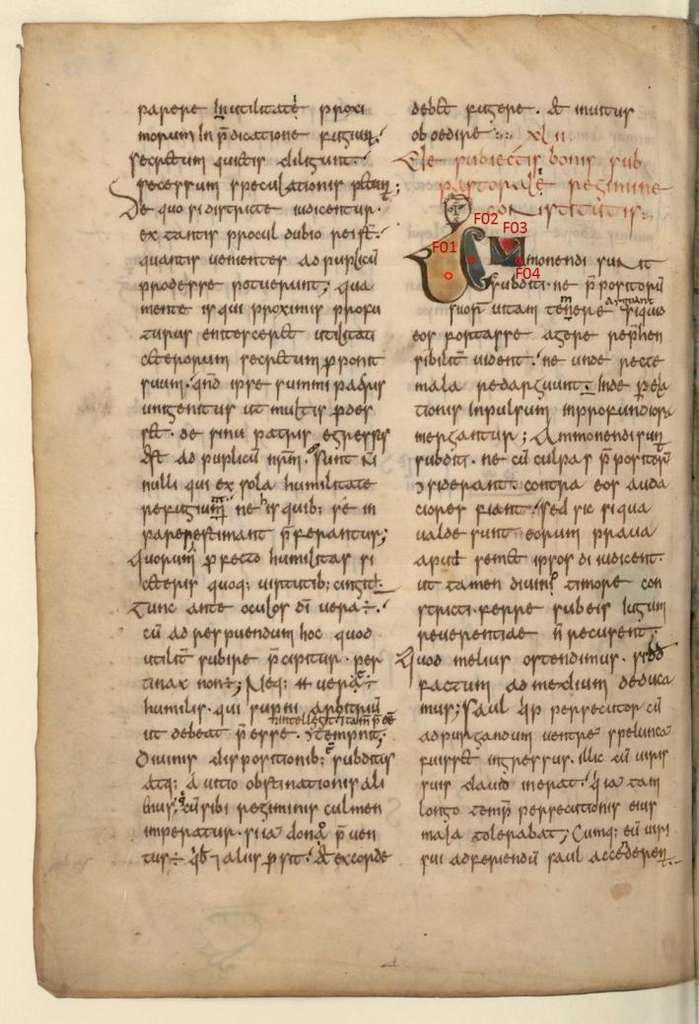 parere in utilitate proxi
morum in p̄dicatione fugiunt.
secretum quietis diligunt.
secessum speculationis
De quo si districte iudicentur.
ex tantis procul dubio rei
quantis venientes ad puplicū
prodesse potuerunt; qua
mente is qui proximis profu
turus enitesceret utilitati
ceterorum secretum p̄ponit
suum. qn̄do ipse summi patris
unigenitus ut multis
de sinu patris egressus
est ad puplicū nr̄m. Sunt
nulli qui ex sola humilitate
refugiunt ne his quib; se in
pares estimant p̄ferantur;
Quorum p̄fecto humilitas si
ceteris quoq; virtutib; cingit
Tunc ante oculos dī vera ÷.
cū ad respuendum hoc quod
utilit̄ subire p̄cipitur. per
tinax non ÷; Neq; vere
humilis. qui superni arbitriū
ut debeat p̄esse.
Divinis dispositionib; subditus
atq; a vitio obstinationis ali
enus; cū sibi regiminis culmen
imperatur. si ia donis p̄ven
tus ÷ q̄b; 7 aliis p̄sit. et ex corde
debet fugere. et invitus
oboedire XL II
pastorale regimine
constitutis
F01
F02
F03
F04
Ammonendi sunt
subditi. ne p̄positorū
suor̄ vitam temere si quid
eos fortasse agere rephen
sibilit̄ vident. ne unde recte
mala redarguunt. Inde p̄ ela
tionis inpulsum in profundiora
mergantur; Ammonendi sunt
subditi. ne cū culpas p̄positorū
siderant. contra eos auda
ciores fiant. Sed sic si qua
valde sunt eorum prava
apud semet ipsos diiudicent.
ut tamen divino timore con
stricti. ferre sub eis iugum
reverentiae n̄ recusent.
Quod melius ostendimus. si dd
factum ad medium deduca
mus; Saul q̄p persecutor cū
ad purgandum ventrē spelunca
fuisset ingressus. illic cū viris
suis david inerat. q̄ ia tam
longo temp̄ persecutionis eius
mala tolerabat; Cumq; eū viri
sui ad feriendū saul accederent